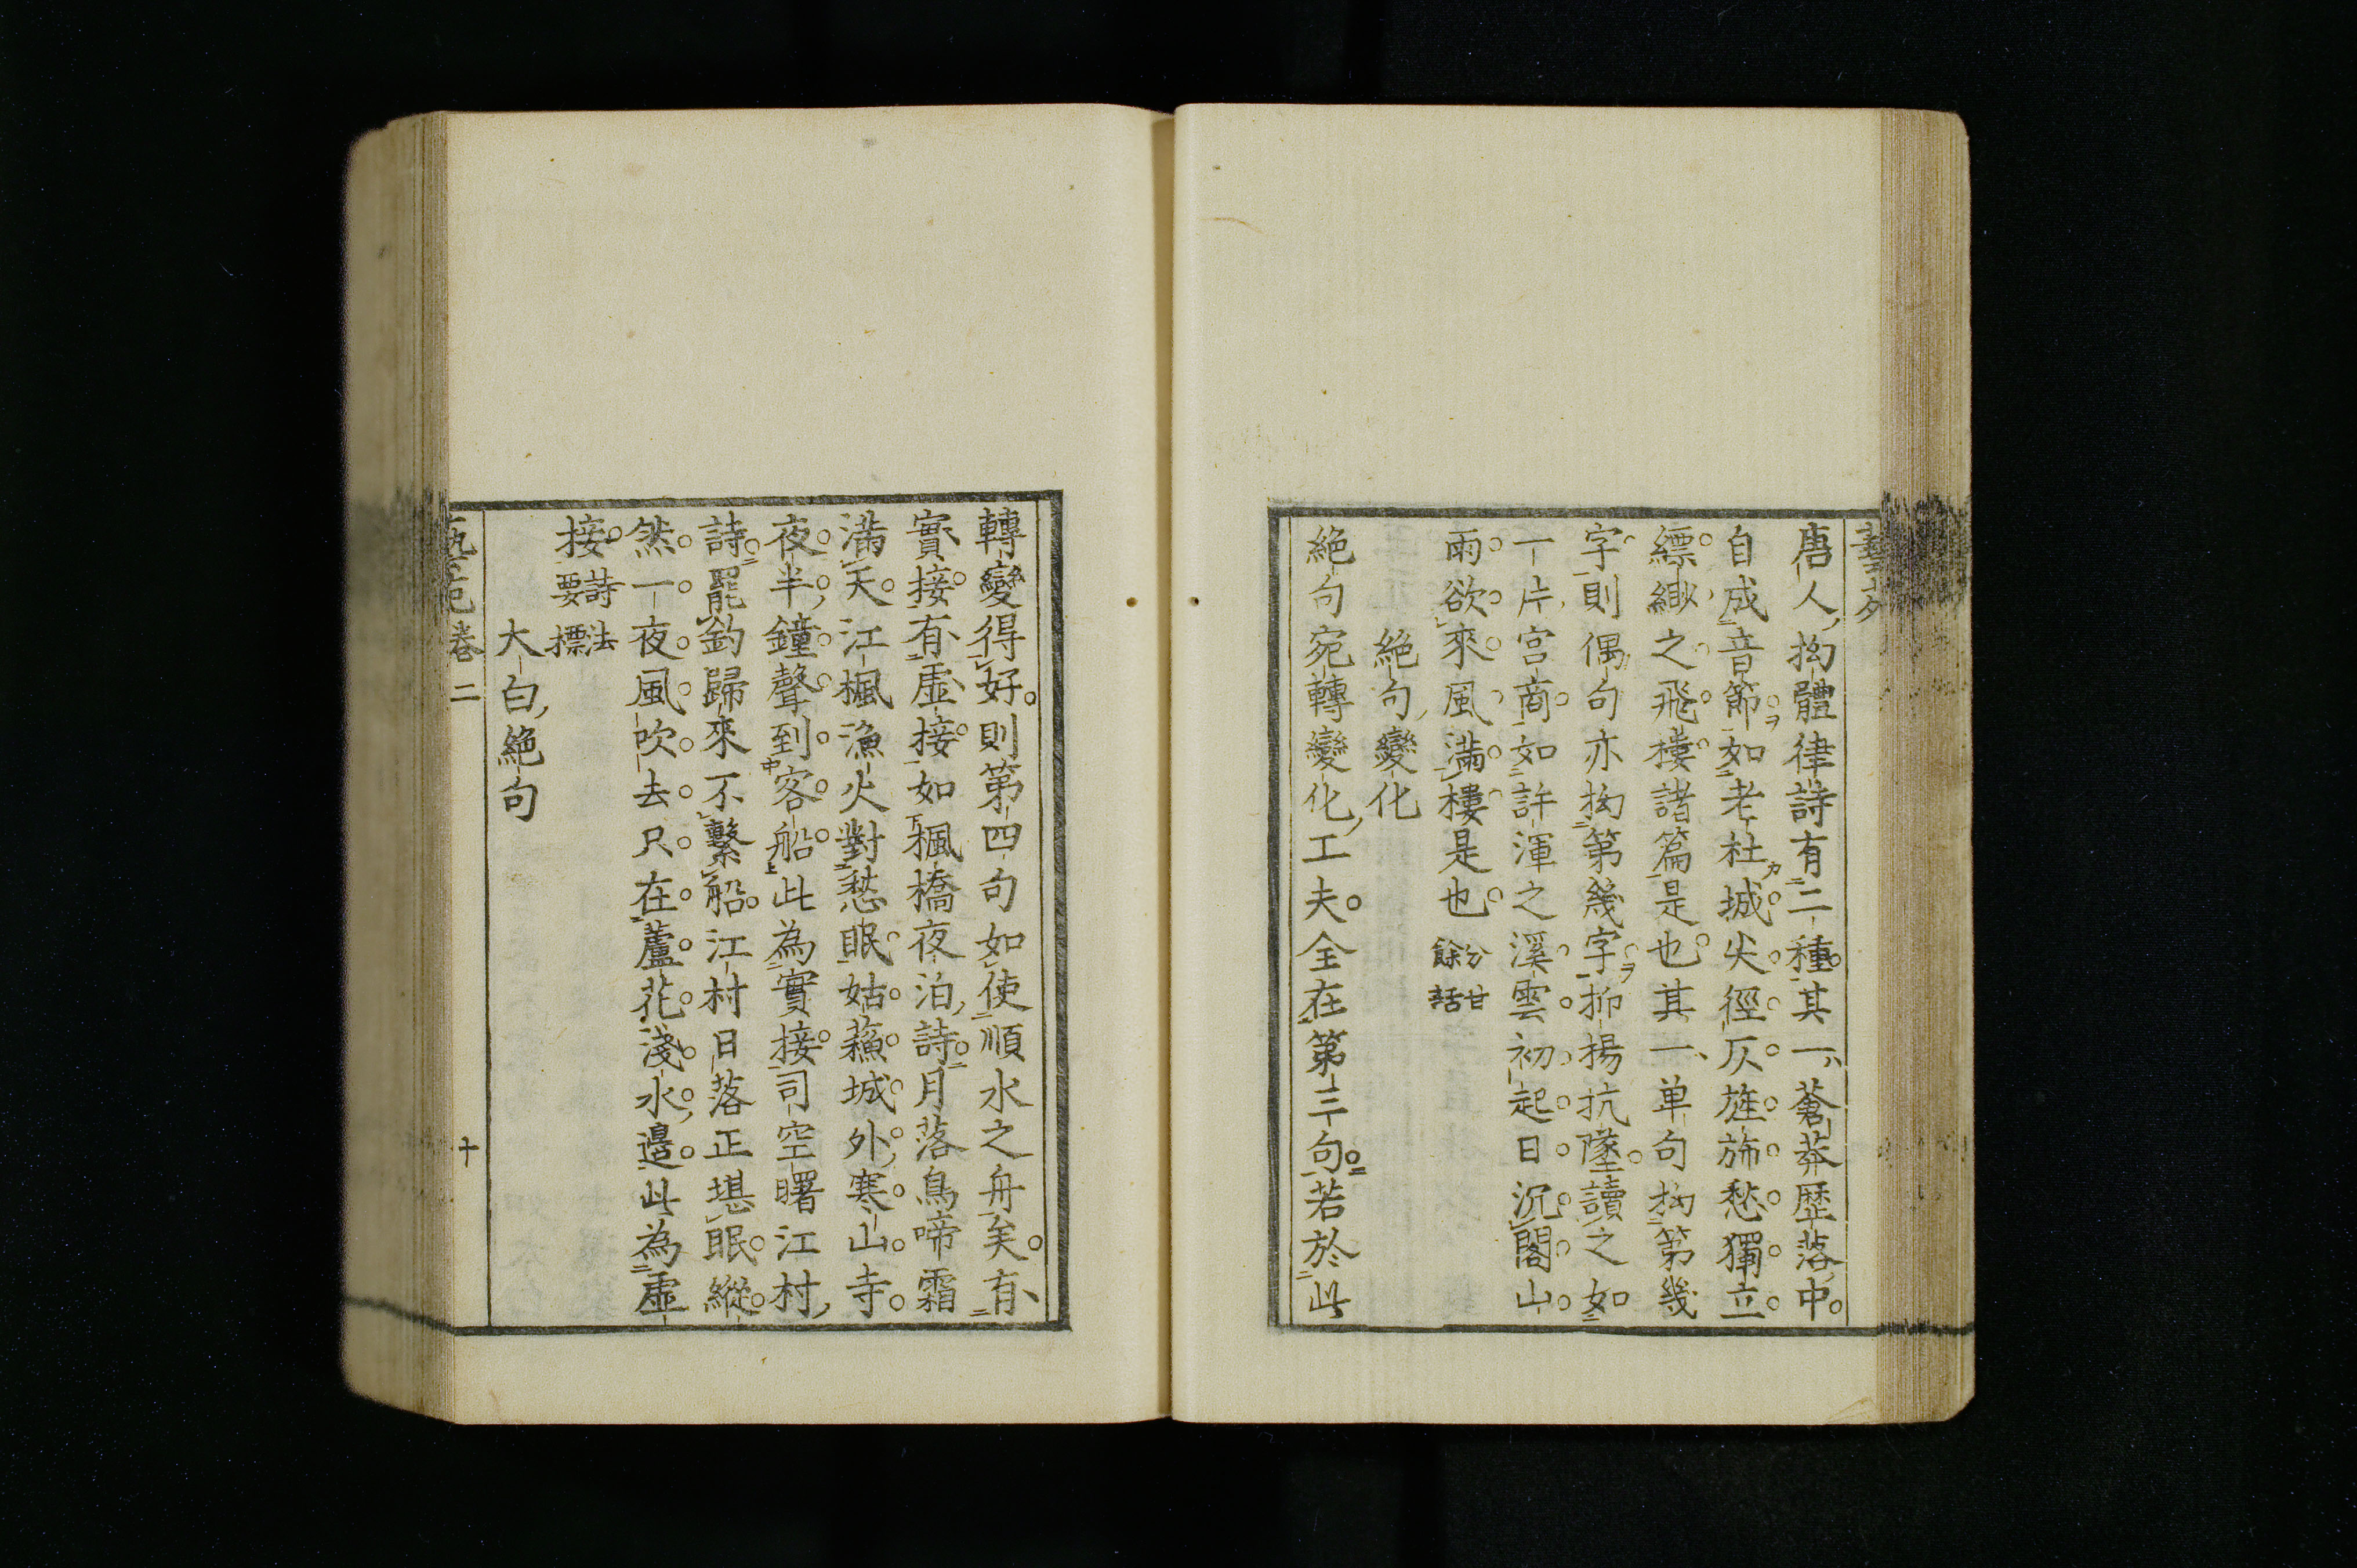 唐人拗體律詩有二種其一蒼莽歷落中
自成音節如老杜城尖徑仄旌斾愁獨立
縹緲之飛樓諸篇是也其一単句拗第幾
字則偶句亦拗第幾字抑揚抗墜讀之如
一片宮商如許渾之溪雲初起日沉閣山
雨欲來風滿樓是也
分甘
餘話
絕句變化
絕句宛轉變化工夫全在第三句若於此
轉變得好則第四句如使順水之舟矣有
實接有虛接如楓橋夜泊詩月落烏啼霜
滿天江楓漁火對愁眠姑蘓城外寒山寺
夜半鐘聲到客船此為實接司空曙江村
詩罷釣歸來不繫船江村日落正堪眠縱
然一夜風吹去只在蘆花淺水邉此為虛
接
詩法
要標
大白絕句
卷二
十